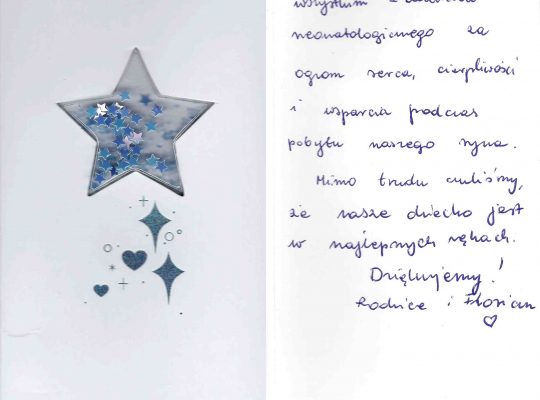 wszystkim z oddziału
neonatologicznego za
ogrom serca, cierpliwości
i wsparcia podczas
pobytu naszego syna.
Mimo trudu czuliśmy,
że nasze dziecko jest
w najlepszych rękach.
Dziękujemy!
Rodzice i Florian